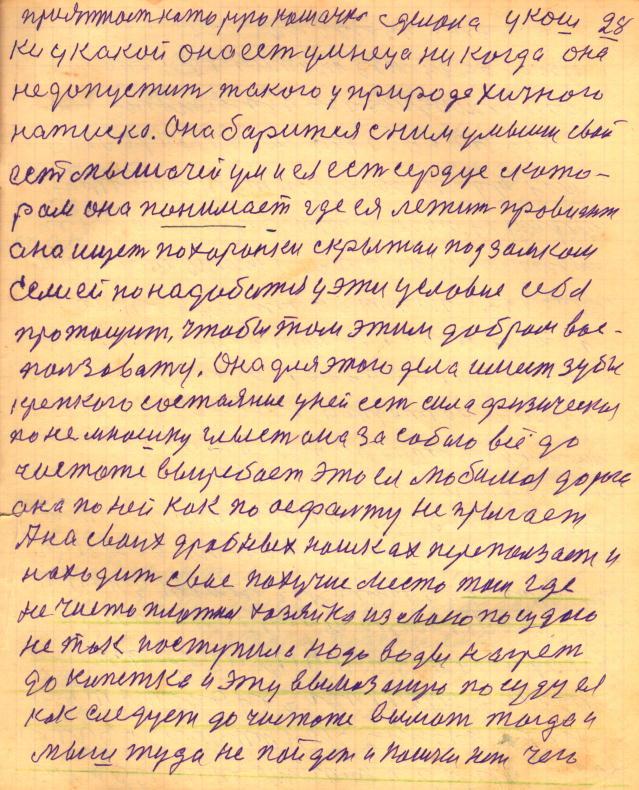 приятност которую кошачка сделана у кош 28
ки у какой она ест умнеца никогда она
недопустит такого у природе хичного
натиско. Она барится сним умыши свой
ест мышачей ум и ея ест сердце ското-
ром она понимает где ея лежит провидит
она ищет похоронки скрытаи подзамком
семьей понадобится у эти условие себя
протощит, чтобы том этим добром вос-
ползовату. Она для этого дела имеет зубы
крепкого состояние уней ест сила физическоя
понемножку она за собою всё до
чистоте выгребает это ея любимоя дорога
она поней как по асфалту не прыгает
А на своих дробных ношках переползает и
находит свое похучие место том где
не чисто хозяйка из своею посудою
не так поступила надо воды нагрет
до кипетка и эту вымозаную посуду ея
как следует до чистоте вымот тогда и
мыши туда не пойдет и кошки нет чего